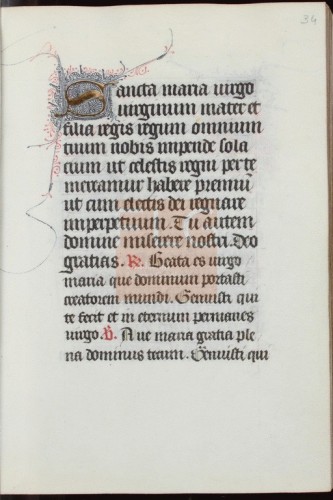 34
Sancta maria uirgo
uirginum mater et
filia regis regum omnium
tuum nobis impende sola
cium ut celestis regni per te
mereamur habere premiũ
ut cum electis dei regnare
inperpetuum. Tu autem
domine miserere nostri. Deo
gratias. R. Beata es uirgo
maria que dominum portasti
creatorem mundi. Genuisti qui
te fecit et in eternum permanes
uirgo. V. Aue maria gratia ple
na dominus tecum. Genuisti qui